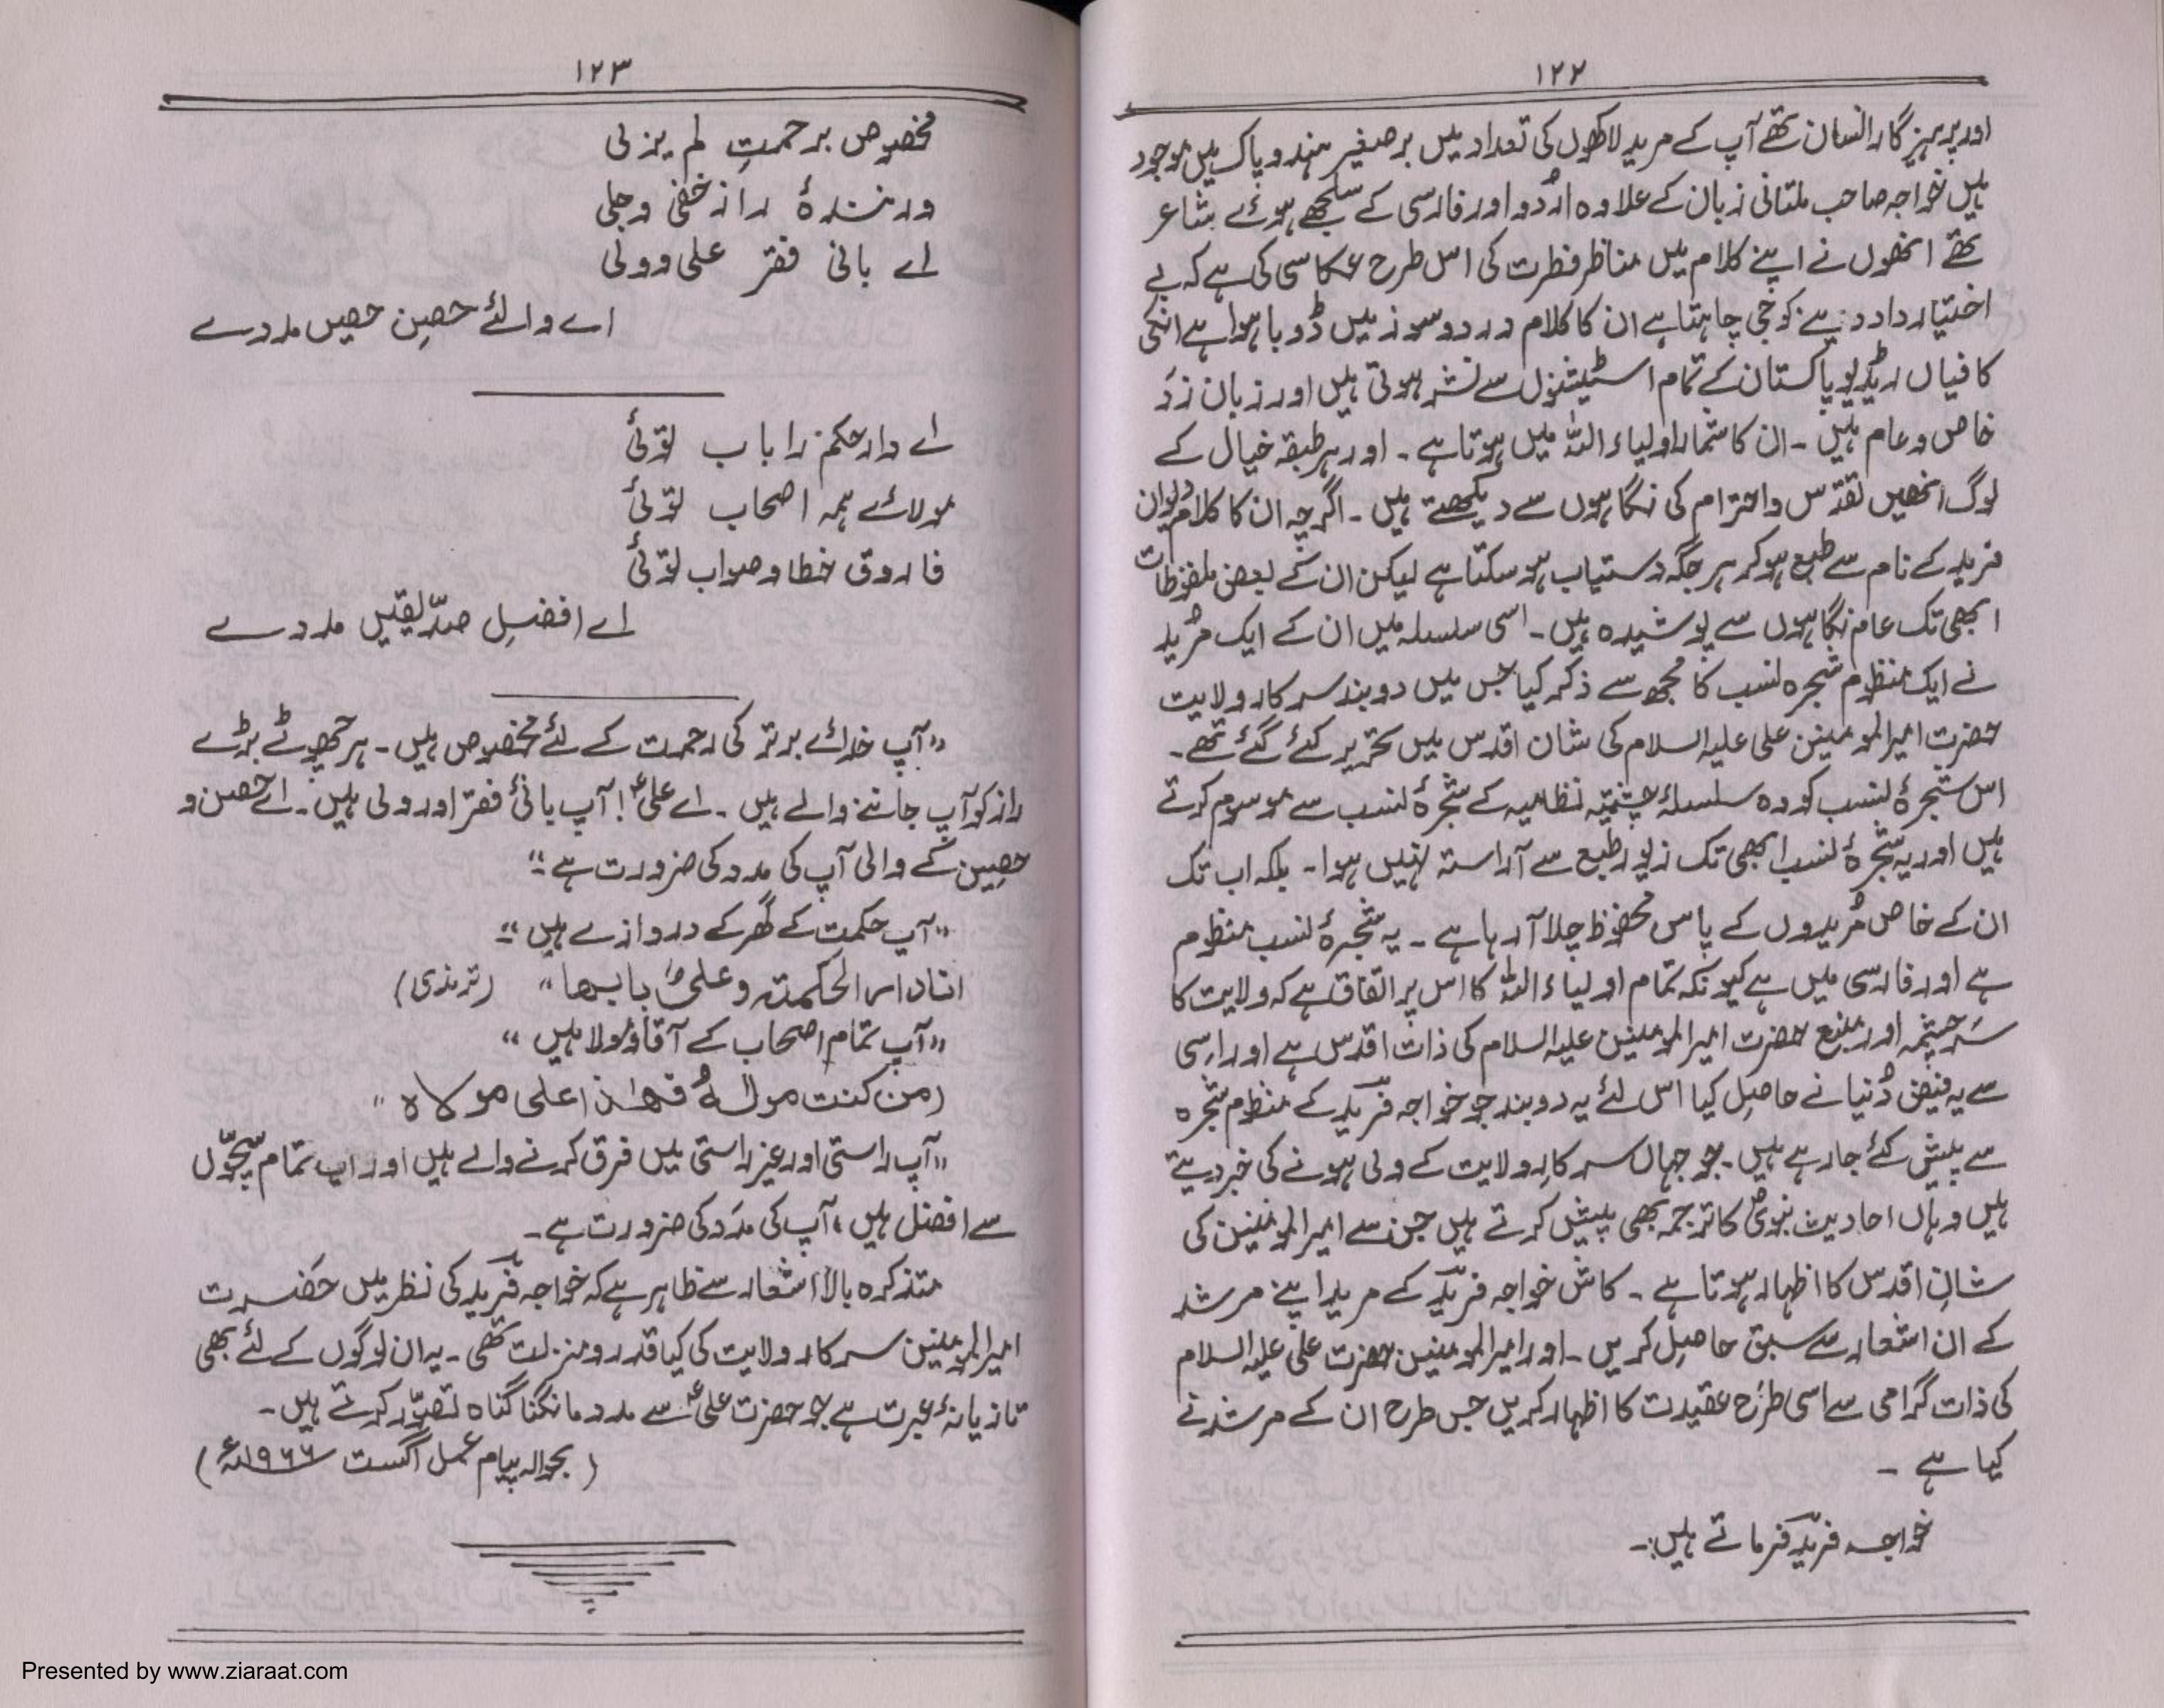 ۱۲۲
اور پرہیزگار انسان تھے آپ کے مرید لاکھوں کی تعداد میں برصغیر ہند و پاک میں موجود
ہیں خواجہ صاحب ملتانی زبان کے علاوہ اُردو اور فارسی کے سلجھے ہوئے شاعر
تھے انھوں نے اپنے کلام میں مناظر فطرت کی اس طرح عکاسی کی ہے کہ بے
اختیار داد دینے کو جی چاہتا ہے ان کا کلام درد و سوز میں ڈوبا ہوا ہے انکی
کافیاں ریڈیو پاکستان کے تمام اسٹیشنوں سے نشر ہوتی ہیں اور زبان زدَ
خاص و عام ہیں ۔ ان کا شمار اولیاء اللہ میں ہوتا ہے ۔ اور ہر طبقہ خیال کے
لوگ انھیں تقدّس و احترام کی نگاہوں سے دیکھتے ہیں ۔ اگرچہ ان کا کلام دیوان
فرید کے نام سے طبع ہو کر ہر جگہ دستیاب ہو سکتا ہے لیکن ان کے بعض ملفوظات
ابھی تک عام نگاہوں سے پوشیدہ ہیں ۔ اسی سلسلہ میں ان کے ایک مُرید
نے ایک منظوم شجرہ نسب کا مجھ سے ذکر کیا جس میں دو بند سرکار ولایت
حضرت امیرالمومنین علی علیہ السلام کی شان اقدس میں تحریر کئے گئے تھے ۔
اس شجرۂ نسب کو وہ سلسلۂ چشتیہ نظامیہ کے شجرۂ نسب سے موسوم کرتے
ہیں اور یہ شجرۂ نسب ابھی تک زیور طبع سے آراستہ نہیں ہوا ۔ بلکہ اب تک
ان کے خاص مُریدوں کے پاس محفوظ چلا آ رہا ہے ۔ یہ شجرۂ نسب منظوم
ہے اور فارسی میں ہے کیونکہ تمام اولیاء اللہ کا اس پر اتفاق ہے کہ ولایت کا
سَرچشمہ اور منبع حضرت امیرالمومنین علیہ السلام کی ذات اقدس ہے اور اسی
سے یہ فیض دُنیا نے حاصل کیا اس لئے یہ دو بند جو خواجہ فریدؒ کے منظوم شجرہ
سے پیش کئے جا رہے ہیں ۔ جو جہاں سرکارِ ولایت کے ولی ہونے کی خبر دیتے
ہیں وہاں احادیث نبویؐ کا ترجمہ بھی پیش کرتے ہیں جن سے امیرالمومنین کی
شانِ اقدس کا اظہار ہوتا ہے ۔ کاش خواجہ فریدؒ کے مرید اپنے مرشد
کے ان اشعار سے سبق حاصل کریں ۔ اور امیرالمومنین حضرت علی علیہ السلام
کی ذات گرامی سے اسی طرَح عقیدت کا اظہار کریں جس طرح ان کے مرشد نے
کیا ہے ۔
خواجہ فریدؒ فرماتے ہیں:۔
۱۲۳
مخصوص برحمتِ لم یزلی
ورنندۂ راز خفی و جلی
اے بانی فقر علی و ولی
اے والئے حصینِ حصیں مددے
اے دار حکم را باب توئی
مولائے ہمہ اصحاب توئی
فاروق خطا و صواب توئی
اے افضلِ صدّیقیں مددے
"آپ خدائے برتر کی رحمت کے لئے مخصوص ہیں ۔ ہر چھوٹے بڑے
راز کو آپ جاننے والے ہیں ۔ اے علیؑ! آپ بانیٔ فقر اور ولی ہیں ۔ اے حصن و
حصین کے والی آپ کی مدد کی ضرورت ہے"
"آپ حکمت کے گھر کے دروازے ہیں"
انا دار الحکمتہ و علیؑ بابھا" (ترمذی)
"آپ تمام اصحاب کے آقا و مولا ہیں"
(من کنت مولاہُ فھٰذا علی مولاہ"
"آپ راستی اور غیر راستی میں فرق کرنے والے ہیں اور آپ تمام سچّوں
سے افضل ہیں، آپ کی مَدَد کی ضرورت ہے ۔
متذکرہ بالا اشعار سے ظاہر ہے کہ خواجہ فریدؒ کی نظر میں حضرت
امیرالمومنین سرکار ولایت کی کیا قدر و منزلت تھی ۔ یہ ان لوگوں کے لئے بھی
تازیانۂ عبرت ہے جو حضرت علیؑ سے مدد مانگنا گناہ تصوّر کرتے ہیں ۔
(بحوالہ پیام عمل اگست ۱۹۶۶ء)
Presented by www.ziaraat.com